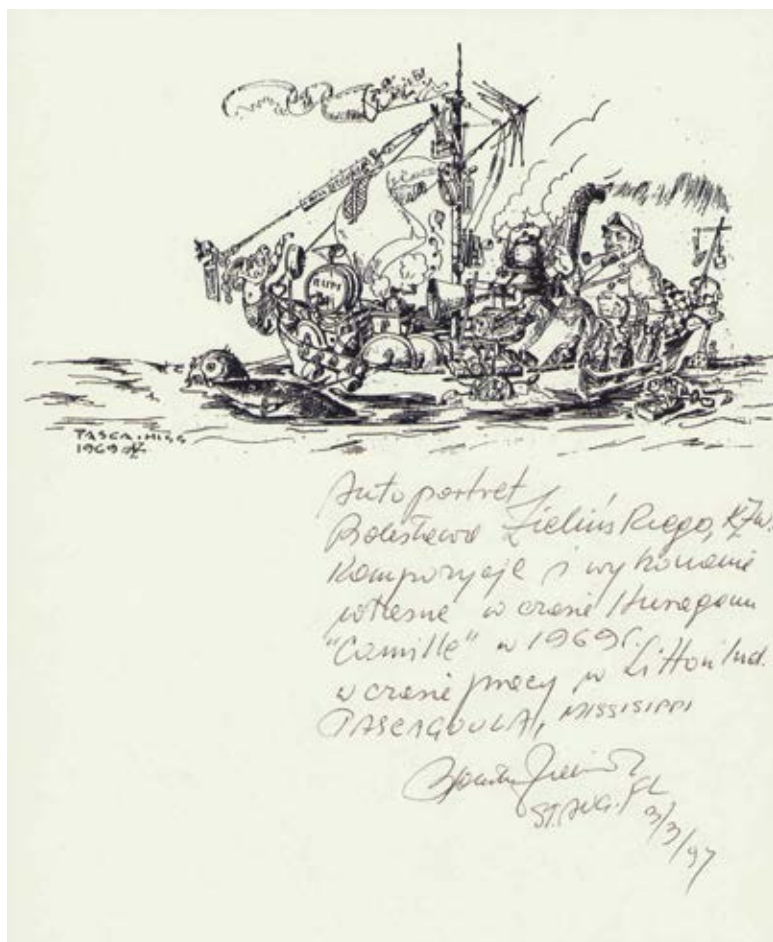 RUM
PASCA. MISS
1969
Autoportret
Bolesława Zielińskiego, KŻW.
Kompozycja i wykonanie
własne w czasie Huraganu
"Camille" w 1969r.
w czasie pracy w Litton Ind.
PASCAGOULA, MISSISIPPI
ST. AUG. FL
3/3/97